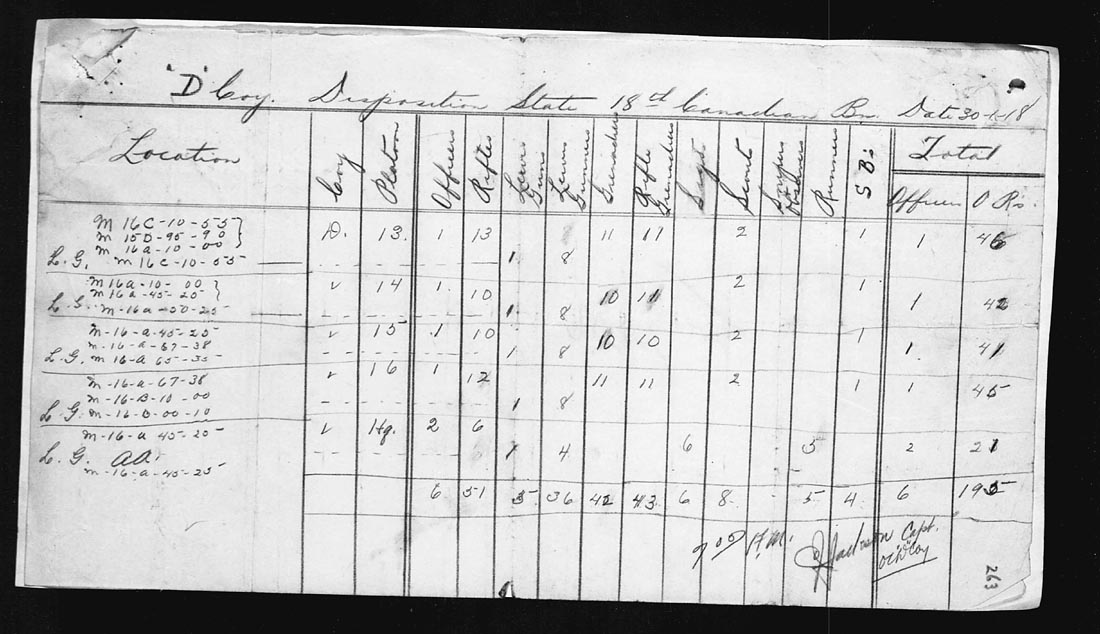 "D" Coy. Disposition State 18th Canadian Bn. Date 30-1-18
Location Coy Platoon Officers Rifles Lewis Guns Lewis Gunners Grenadiers Rifle Grenadiers Sigs Servts Snipers Observers Runners S B's Total
Officers O R's.
M 16C-10-55 D. 13. 1 13 11 11 2 1 1 46
M 15D-95-90
M 16a-10-00
L. G. M 16C-10-55 1 8
M 16a-10-00 " 14 1 10 10 11 2 1 1 42
M 16a-45-25
L. G. M-16a-50-25 1 8
M-16-a-45-25 " 15 1 10 10 10 2 1 1 41
M-16-a-67-38
L. G. M 16-A 65-35 1 8
M-16-a-67-38 " 16 1 12 11 11 2 1 1 45
M-16-B-10-00
L. G. M-16-B-00-10 1 8
M-16-a 45-25 " Hq. 2 6 6 5 2 21
L. G. AA. 1 4
M-16-a-45-25
6 51 5 36 42 43 6 8 5 4 6 195
Jackson Capt.
OC "D" Coy
263